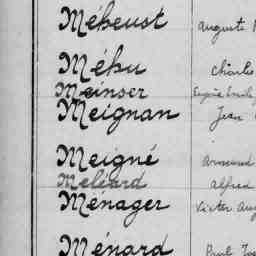 Méheust Auguste
Méhu Charles
Meinser Eugène Emile
Meignan Jean
Meigné Armand
Meléard Alfred
Ménager Victor Aug
Ménard Paul Jos